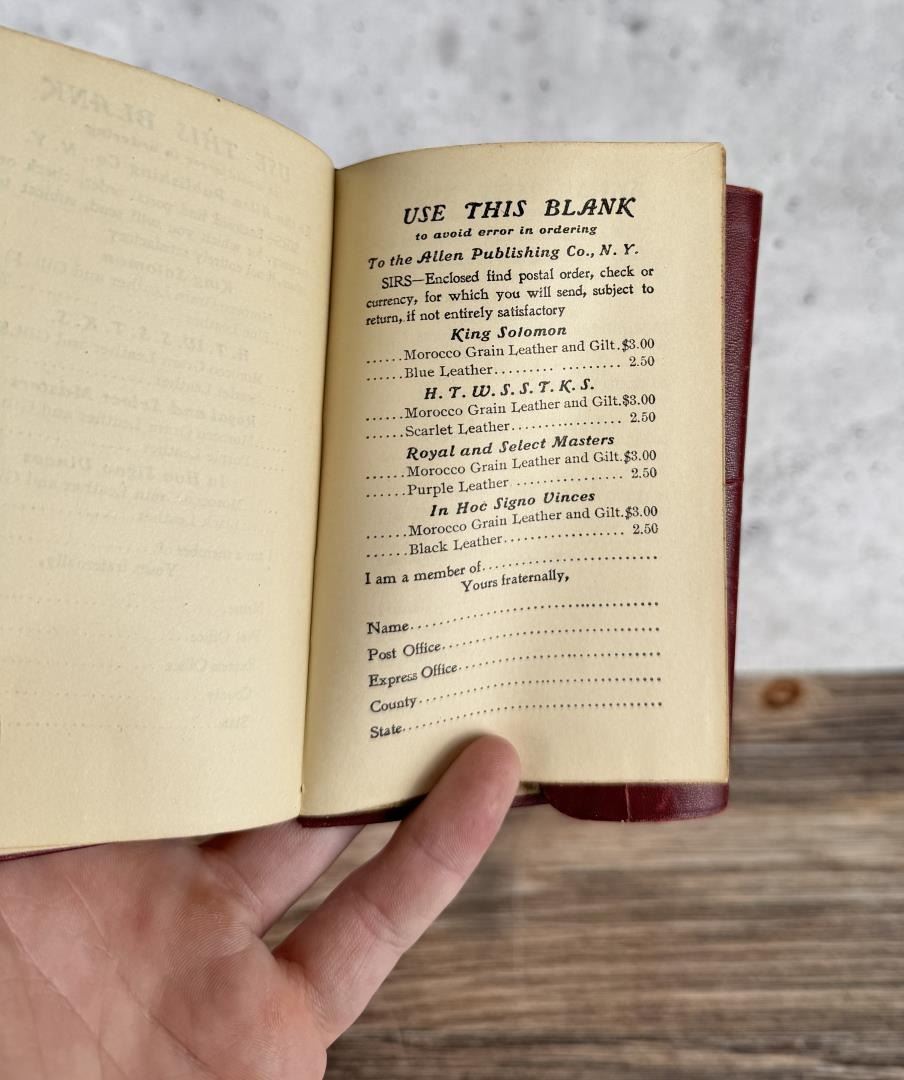 USE THIS BLANK
to avoid error in ordering
To the Allen Publishing Co., N. Y.
SIRS—Enclosed find postal order, check or
currency, for which you will send, subject to
return, if not entirely satisfactory
King Solomon
......Morocco Grain Leather and Gilt.$3.00
......Blue Leather......... ......... 2.50
H. T. W. S. S. T. K. S.
......Morocco Grain Leather and Gilt.$3.00
......Scarlet Leather................. 2.50
Royal and Select Masters
......Morocco Grain Leather and Gilt.$3.00
......Purple Leather ................ 2.50
In Hoc Signo Vinces
......Morocco Grain Leather and Gilt.$3.00
......Black Leather.................. 2.50
I am a member of..........................
Yours fraternally,
Name.....................................
Post Office................................
Express Office.............................
County...................................
State.....................................